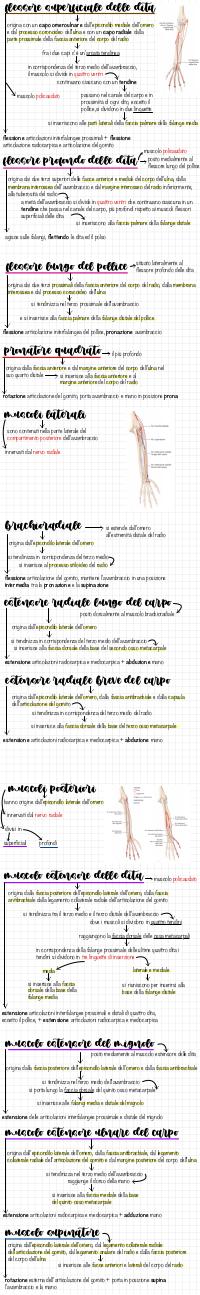 flessore superficiale delle dita
origina con un capo omeroulnare dall'epicondilo mediale dell'omero
e dal processo coronoideo dell'ulna e con un capo radiale dalla
parte prossimale della faccia anteriore del corpo del radio
fra i due capi c'è un'arcata tendinea
in corrispondenza del terzo medio dell'avambraccio,
il muscolo si divide in quattro ventri
continuano ciascuno con un tendine
muscolo policaudato
passano nel canale del carpo e in
prossimità di ogni dito, eccetto il
pollice, si dividono in due linguette
si inseriscono alle parti laterali della faccia palmare della falange media
flessione e articolazioni interfalangee prossimali + flessione
articolazione radiocarpica e articolazione del gomito
flessore profondo delle dita
muscolo policaudato
posto medialmente al
flessore lungo del pollice
origina dai due terzi superiori delle facce anteriori e mediali del corpo dell'ulna, dalla
membrana interossea dell'avambraccio e dal margine interosseo del radio inferiormente,
alla tuberosità del radio
a metà dell'avambraccio si divide in quattro ventri che continuano ciascuno in un
tendine che passa nel canale del carpo, più profondi rispetto ai muscoli flessori
superficiali delle dita
si inseriscono alla faccia palmare della falange distale
agisce sulle falangi, flettendo le dita ed il polso
flessore lungo del pollice
situato lateralmente al
flessore profondo delle dita
origina dai due terzi prossimali della faccia anteriore del corpo del radio, dalla membrana
interossea e dal processo coronoideo dell'ulna
si tendinizza nel terzo prossimale dell'avambraccio
e si inserisce alla faccia palmare della falange distale del pollice
flessione articolazione interfalangea del pollice, pronazione avambraccio
pronatore quadrato
il più profondo
origina dalla faccia anteriore e dal margine anteriore del corpo dell'ulna nel
suo quarto distale
si inserisce alla faccia anteriore e al
margine anteriore del corpo del radio
rotazione articolazione del gomito, porta avambraccio e mano in posizione prona
muscoli laterali
sono contenuti nella parte laterale del
compartimento posteriore dell'avambraccio
innervati dal nervo radiale
brachioradiale
si estende dall'omero
all'estremità distale del radio
origina dall'epicondilo laterale dell'omero
si tendinizza in corrispondenza del terzo medio
si inserisce al processo stiloideo del radio
flessione articolazione del gomito, mantiene l'avambraccio in una posizione
intermedia tra la pronazione e la supinazione
estensore radiale lungo del carpo
posto dorsalmente al muscolo brachioradiale
origina dall'epicondilo laterale dell'omero
si tendinizza in corrispondenza del terzo medio dell'avambraccio
si inserisce alla faccia dorsale della base del secondo osso metacarpale
estensione articolazioni radiocarpica e mediocarpica + abduzione mano
estensore radiale breve del carpo
origina dall'epicondilo laterale dell'omero, dalla fascia antibrachiale e dalla capsula
dell'articolazione del gomito
si tendinizza in corrispondenza del terzo medio del radio
si inserisce alla faccia dorsale della base del terzo osso metacarpale
estensione articolazioni radiocarpica e mediocarpica + abduzione mano
muscoli posteriori
hanno origine dall'epicondilo laterale dell'omero
innervati dal nervo radiale
divisi in
superficiali
profondi
muscolo estensore delle dita
muscolo policaudato
origina dalla faccia posteriore dell'epicondilo laterale dell'omero, dalla fascia
antibrachiale e dal legamento collaterale radiale dell'articolazione del gomito
si tendinizza tra il terzo medio e il terzo distale dell'avambraccio
dove il muscolo si divide in quattro tendini
raggiungono la faccia dorsale delle ossa metacarpali
in corrispondenza della falange prossimale delle ultime quattro dita i
tendini si dividono in tre linguette di inserzione
media
laterale e mediale
si inserisce alla faccia
dorsale della base della
falange media
si riuniscono per inserirsi alla
base della falange distale
estensione articolazioni interfalangee prossimali e distali di quattro dita,
eccetto il pollice, + estensione articolazioni radiocarpica e mediocarpica
muscolo estensore del mignolo
posto medialmente al muscolo estensore delle dita
origina dalla faccia posteriore dell'epicondilo laterale dell'omero e dalla fascia antibrachiale
si tendinizza nel terzo medio dell'avambraccio
si porta lungo la faccia dorsale del quinto osso metacarpale
si inserisce alle falangi media e distale del mignolo
estensione delle articolazioni interfalangee prossimale e distale del mignolo
muscolo estensore ulnare del carpo
origina dall'epicondilo laterale dell'omero, dalla fascia antibrachiale, dal legamento
collaterale radiale dell'articolazione del gomito e dal margine posteriore del corpo dell'ulna
si tendinizza nel terzo medio dell'avambraccio
raggiunge il dorso della mano
si inserisce alla faccia mediale della base
del quinto osso metacarpale
estensione articolazioni radiocarpica e mediocarpica + adduzione mano
muscolo supinatore
origina dall'epicondilo laterale dell'omero, dal legamento collaterale radiale
dell'articolazione del gomito, dal legamento anulare del radio e dalla faccia posteriore
del corpo dell'ulna
si inserisce alle facce anteriore e laterale del corpo del radio
rotazione esterna dell'articolazione del gomito + porta in posizione supina
l'avambraccio e la mano